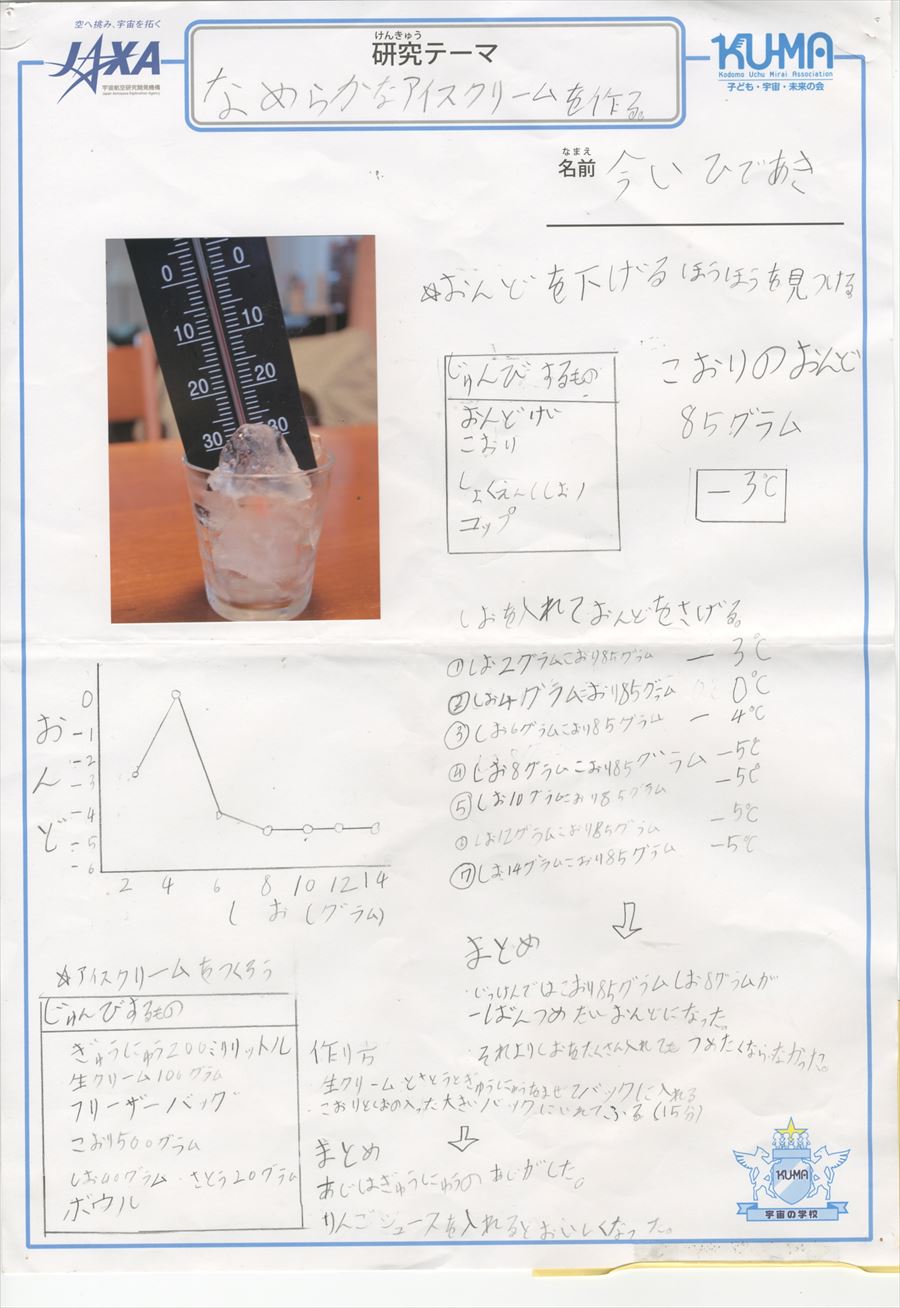 空へ挑み、宇宙を拓く
JAXA
宇宙航空研究開発機構
Japan Aerospace Exploration Agency
けんきゅう
研究テーマ
なめらかなアイスクリームを作る。
KU-MA
Kodomo Uchu Mirai Association
子ども・宇宙・未来の会
なまえ
名前 今い ひであき
0 0
10 10
20 20
30 30
☆おんどを下げるほうほうを見つける
じゅんびするもの
おんどけい
こおり
しょくえん(しお)
コップ
こおりのおんど
85グラム
-3℃
しおを入れておんどをさげる。
①しお2グラムこおり85グラム -3℃
②しお4グラムこおり85グラム 0℃
③しお6グラムこおり85グラム -4℃
④しお8グラムこおり85グラム -5℃
⑤しお10グラムこおり85グラム -5℃
⑥しお12グラムこおり85グラム -5℃
⑦しお14グラムこおり85グラム -5℃
おんど
0
-1
-2
-3
-4
-5
-6
2 4 6 8 10 12 14
しお(グラム)
まとめ
・じっけんではこおり85グラムしお8グラムが
一ばんつめたいおんどになった。
・それよりしおをたくさん入れてもつめたくならなかった。
☆アイスクリームをつくろう
じゅんびするもの
ぎゅうにゅう200ミリリットル
生クリーム100グラム
フリーザーバッグ
こおり500グラム
しお40グラム・さとう20グラム
ボウル
作り方
・生クリームとさとうとぎゅうにゅうをまぜてバックに入れる
・こおりとしおの入った大きいバックにいれてふる(15分)
まとめ
あじはぎゅうにゅうのあじがした。
りんごジュースを入れるとおいしくなった。
KU-MA
宇宙の学校